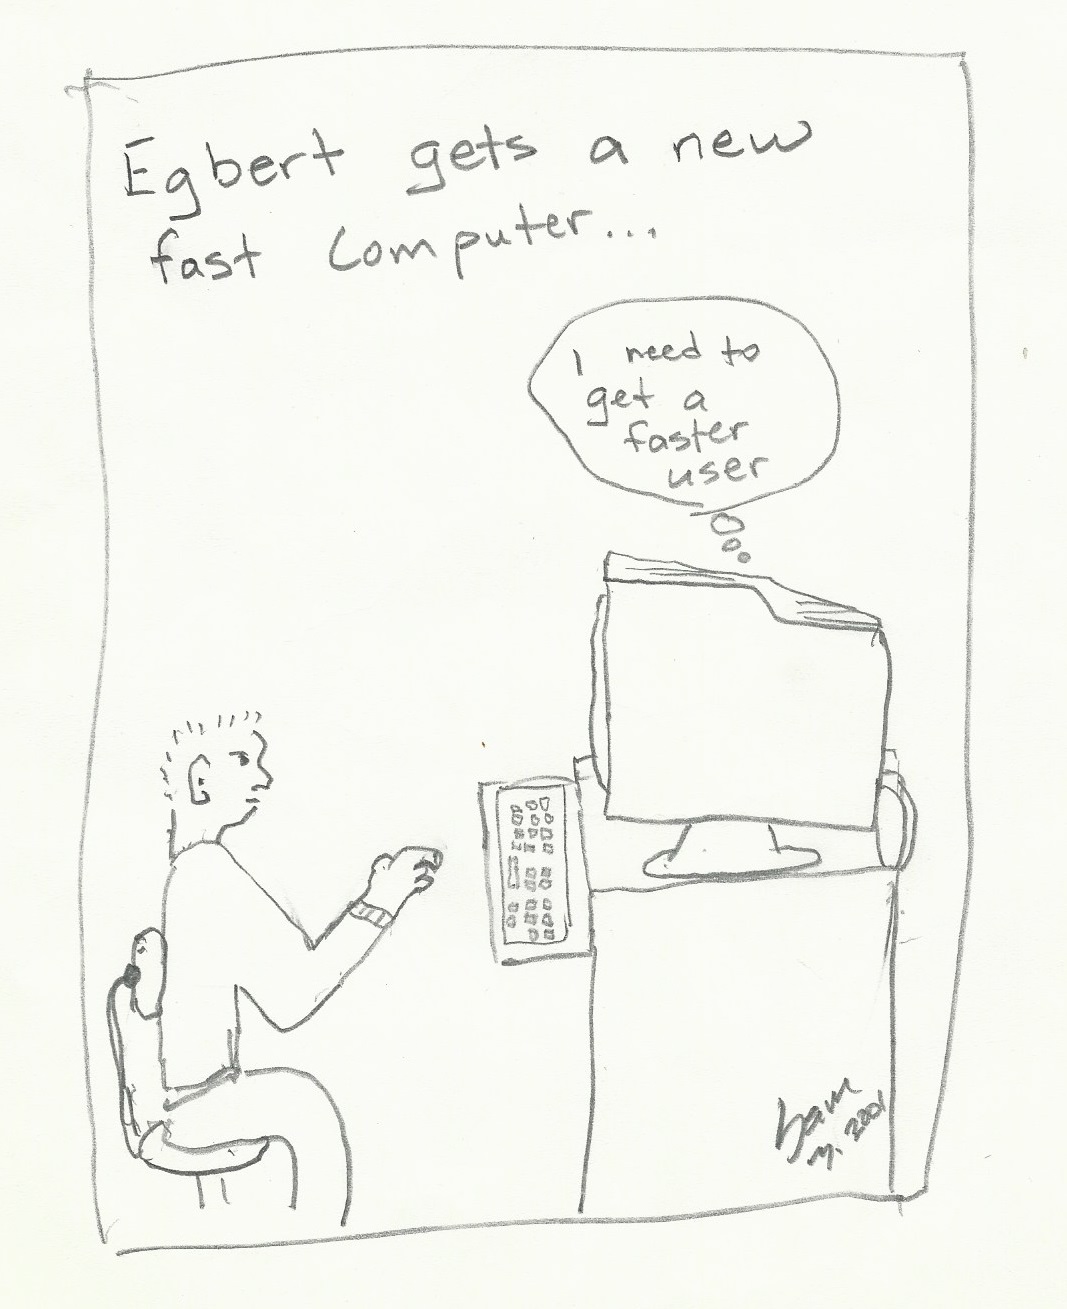 Egbert gets a new
fast computer...
I need to
get a
faster
user
M. 2001